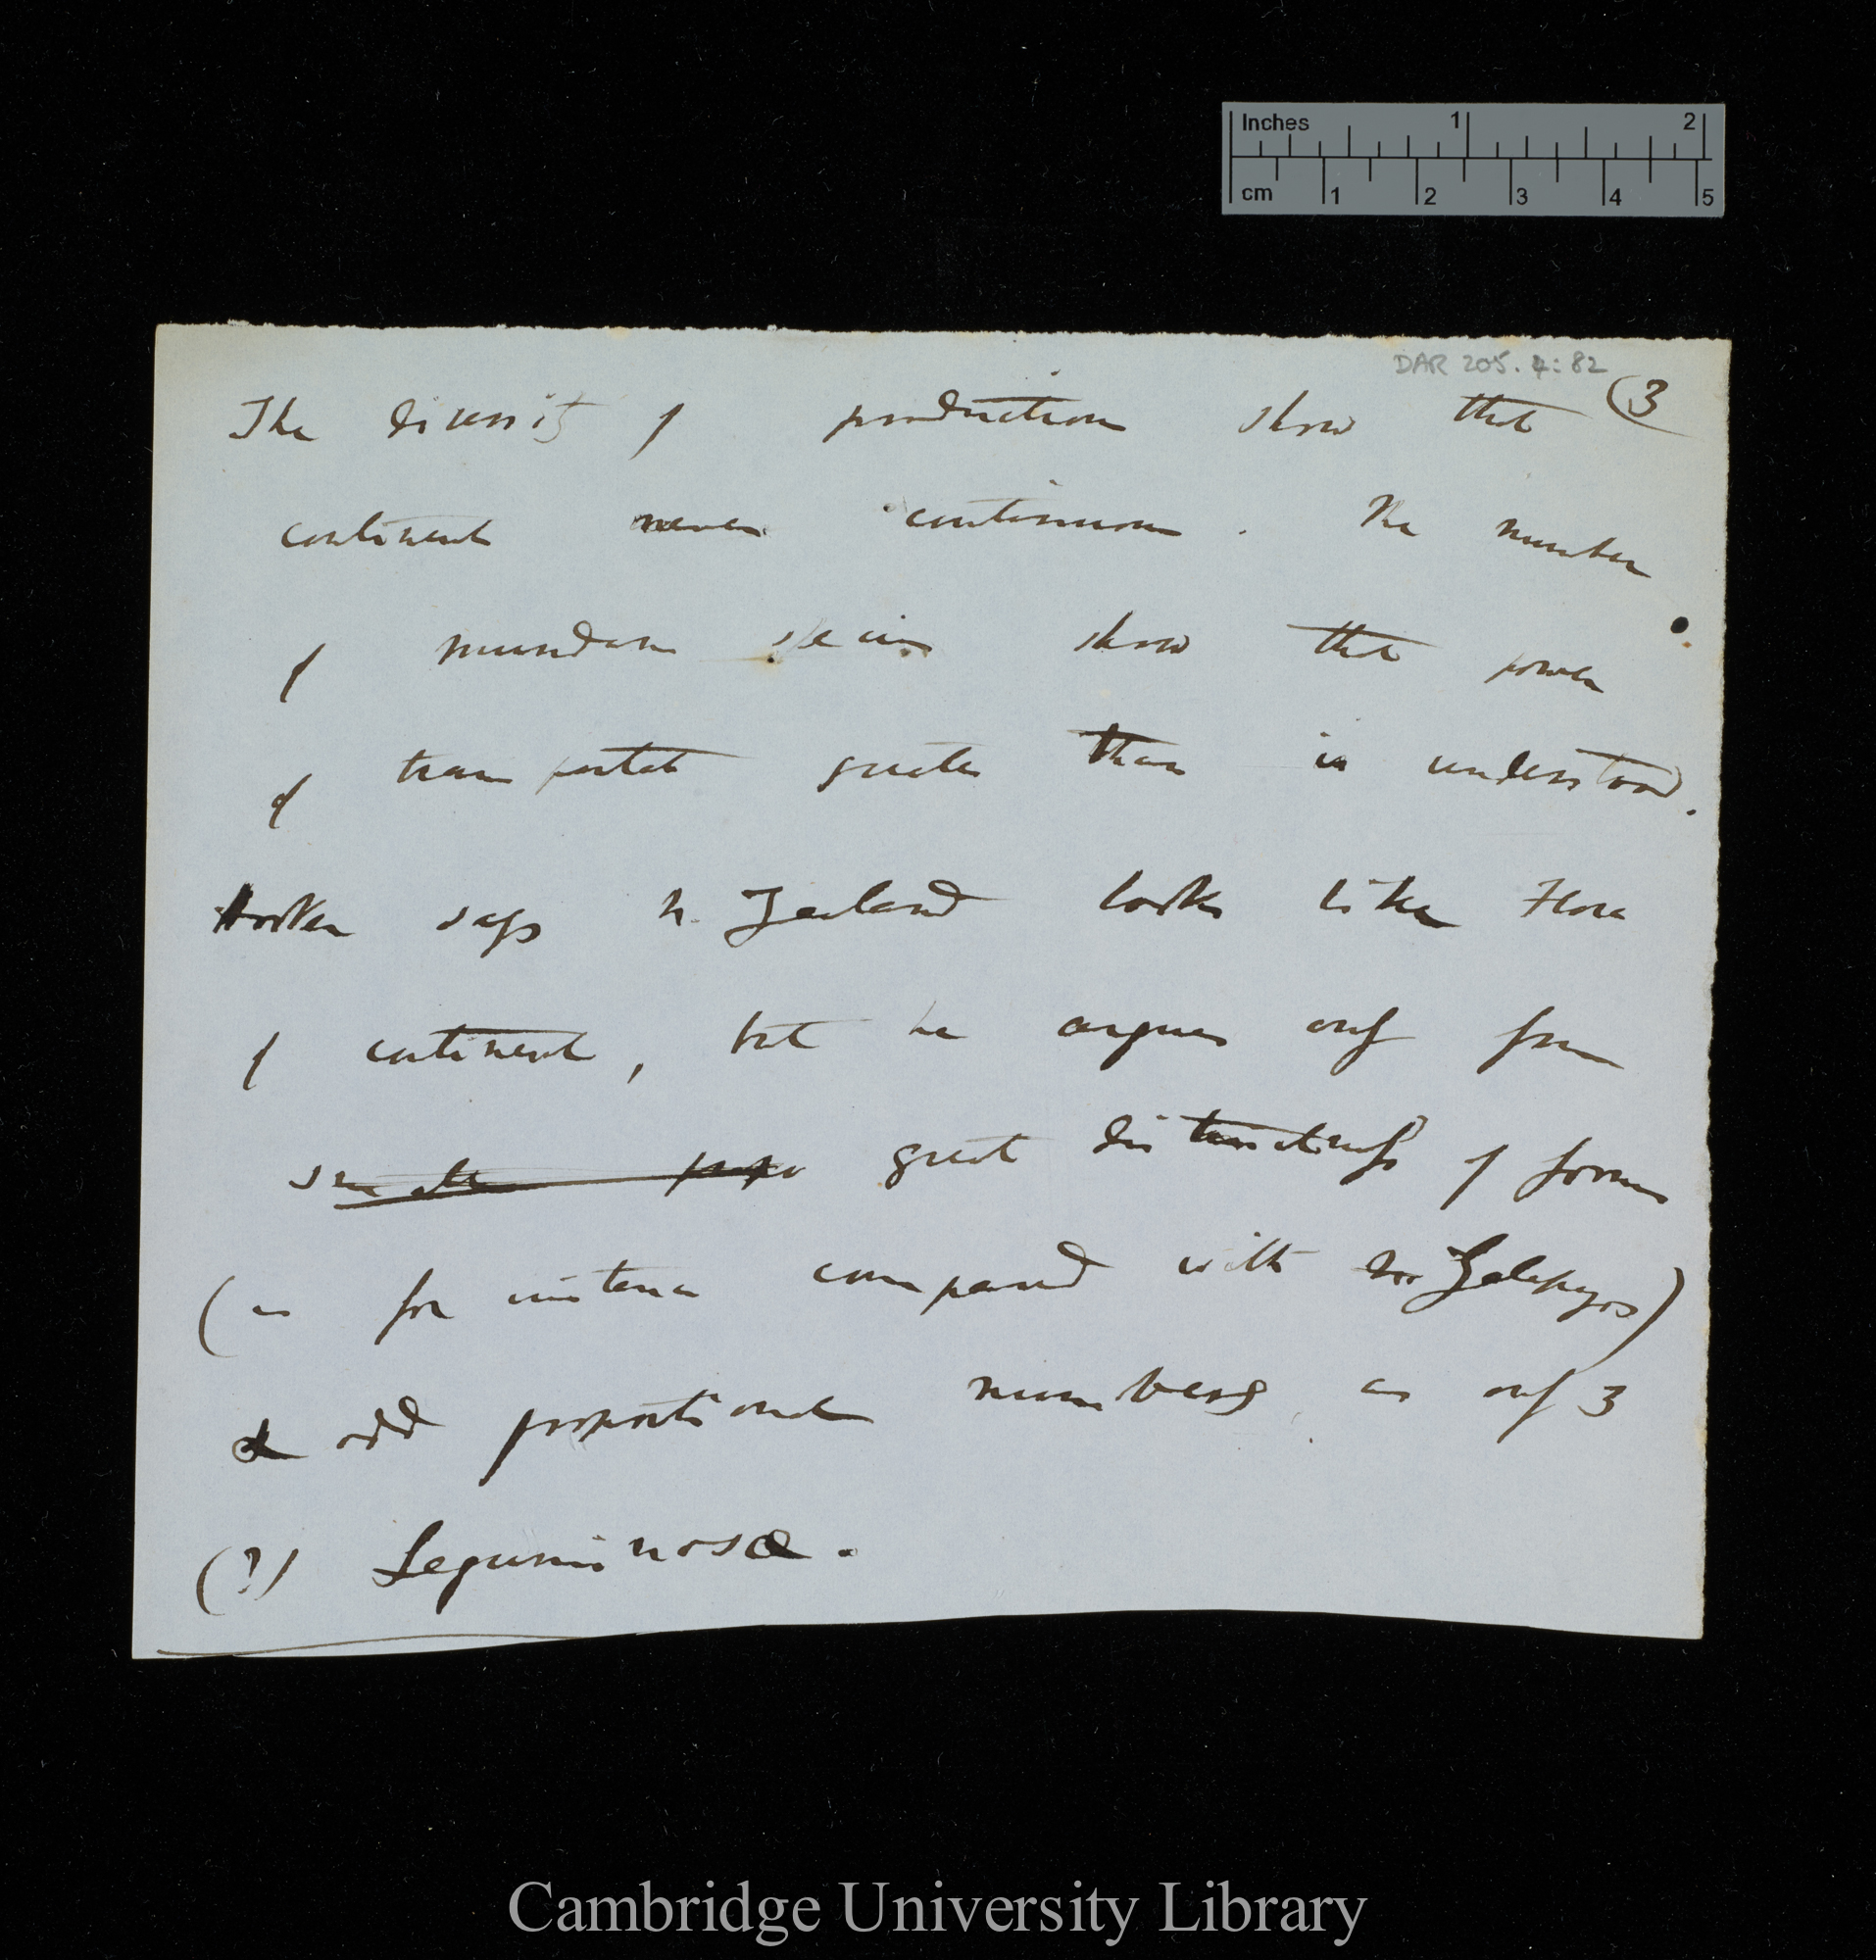 Inches 1 2
cm 1 2 3 4 5
DAR 205.4:82
(3
The diversity of productions show that
continent never continuous. The number
of mundane species show that power
of transportat greater than is understood.
Hooker says N. Zealand looks like Flora
of continent, but he argues only from
great distinctness of forms
(as for instance compared with Galapagos)
& odd proportional numbers as only 3
(?) Leguminosæ.
Cambridge University Library